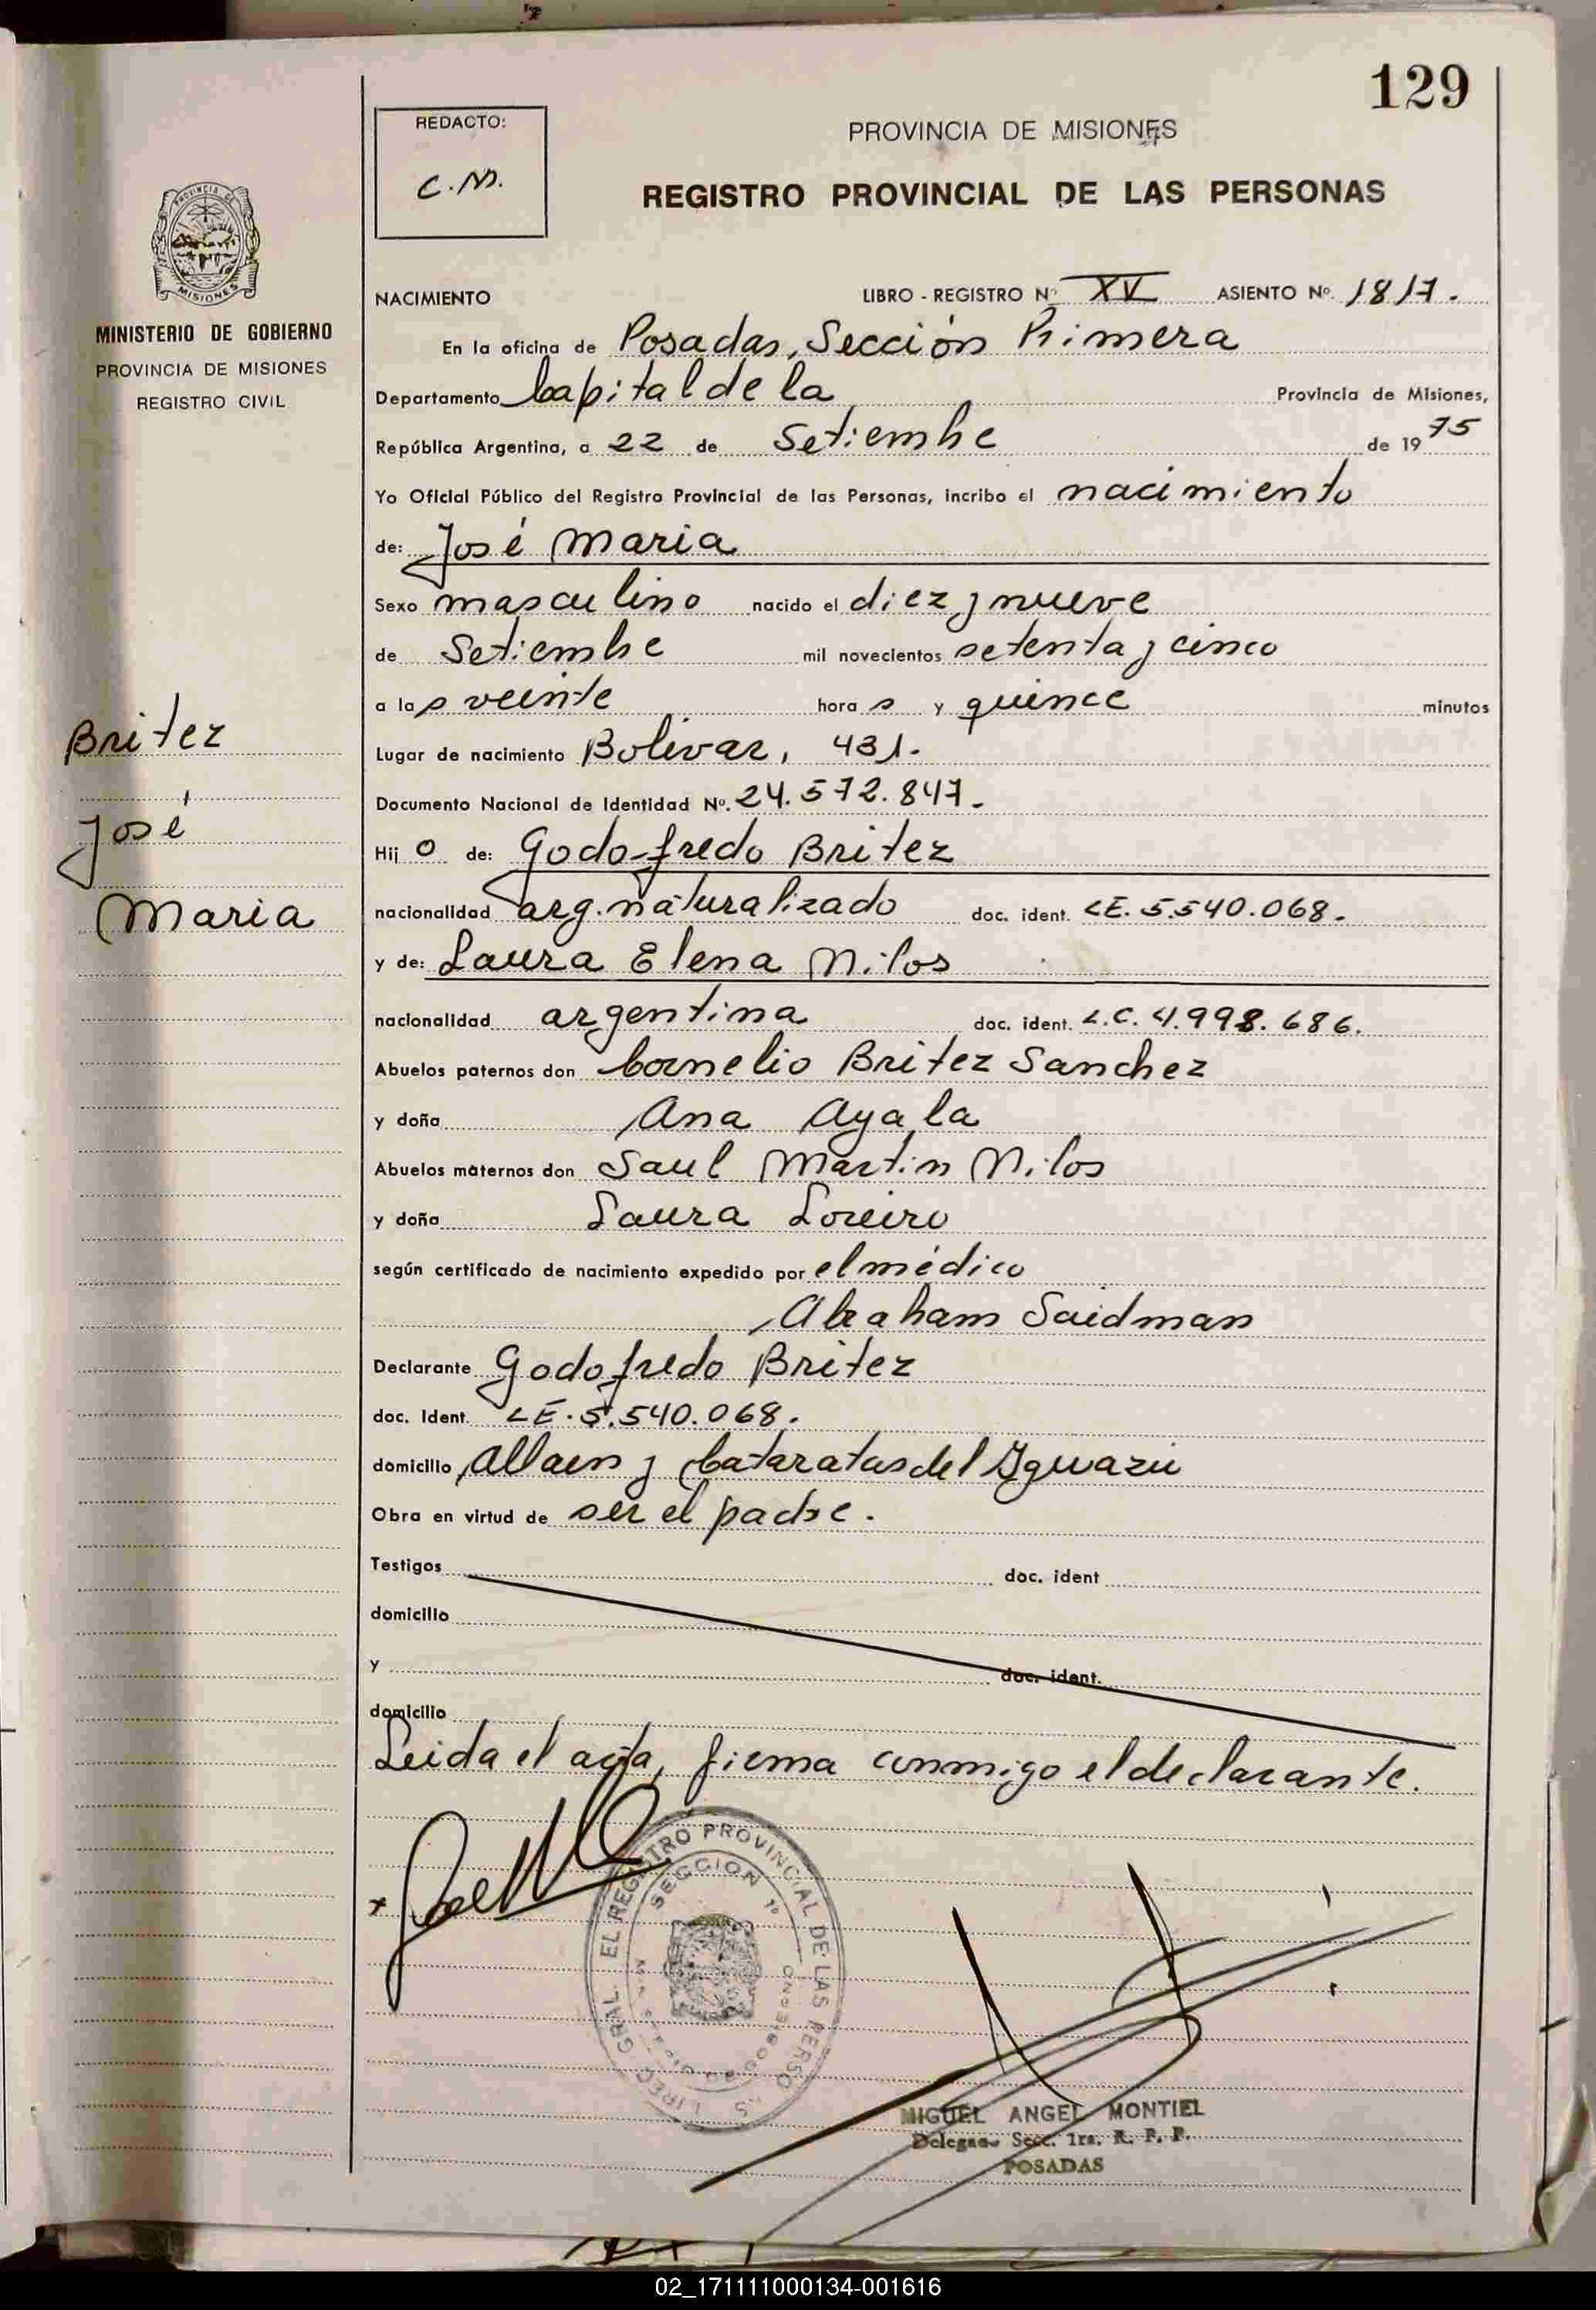 129
REDACTO:
C.M.
PROVINCIA DE MISIONES
REGISTRO PROVINCIAL DE LAS PERSONAS
PROVINCIA DE
MISIONES
MINISTERIO DE GOBIERNO
PROVINCIA DE MISIONES
REGISTRO CIVIL
NACIMIENTO LIBRO - REGISTRO Nº XV ASIENTO Nº 1817.
En la oficina de Posadas, Sección Primera
Departamento Capital de la Provincia de Misiones,
República Argentina, a 22 de Setiembre de 1975
Yo Oficial Público del Registro Provincial de las Personas, incribo el nacimiento
de: José Maria
Sexo masculino nacido el diez y nueve
de Setiembre mil novecientos setenta y cinco
a las veinte horas y quince minutos
Britez
José
Maria
Lugar de nacimiento Bolivar, 431.
Documento Nacional de Identidad Nº. 24.572.847.
Hijo de: Godofredo Britez
nacionalidad arg. naturalizado doc. ident. LE. 5.540.068.
y de: Laura Elena Milos
nacionalidad argentina doc. ident. L.C. 4.998.686.
Abuelos paternos don Cornelio Britez Sanchez
y doña Ana Ayala
Abuelos maternos don Saul Martin Milos
y doña Laura Loreiro
según certificado de nacimiento expedido por el médico
Abraham Saidman
Declarante Godofredo Britez
doc. Ident. LE. 5.540.068.
domicilio y Cataratas del Iguazú
Obra en virtud de ser el padre.
Testigos doc. ident
domicilio
y doc. ident.
domicilio
Leida el acta, firma conmigo el declarante.
GRAL. EL REGISTRO PROVINCIAL DE LAS PERSO
SECCION 1º
MIGUEL ANGEL MONTIEL
Secc. 1ra. R. P. P.
POSADAS
02_171111000134-001616